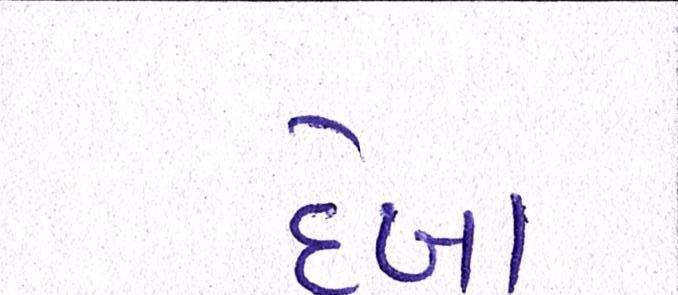 દેખા